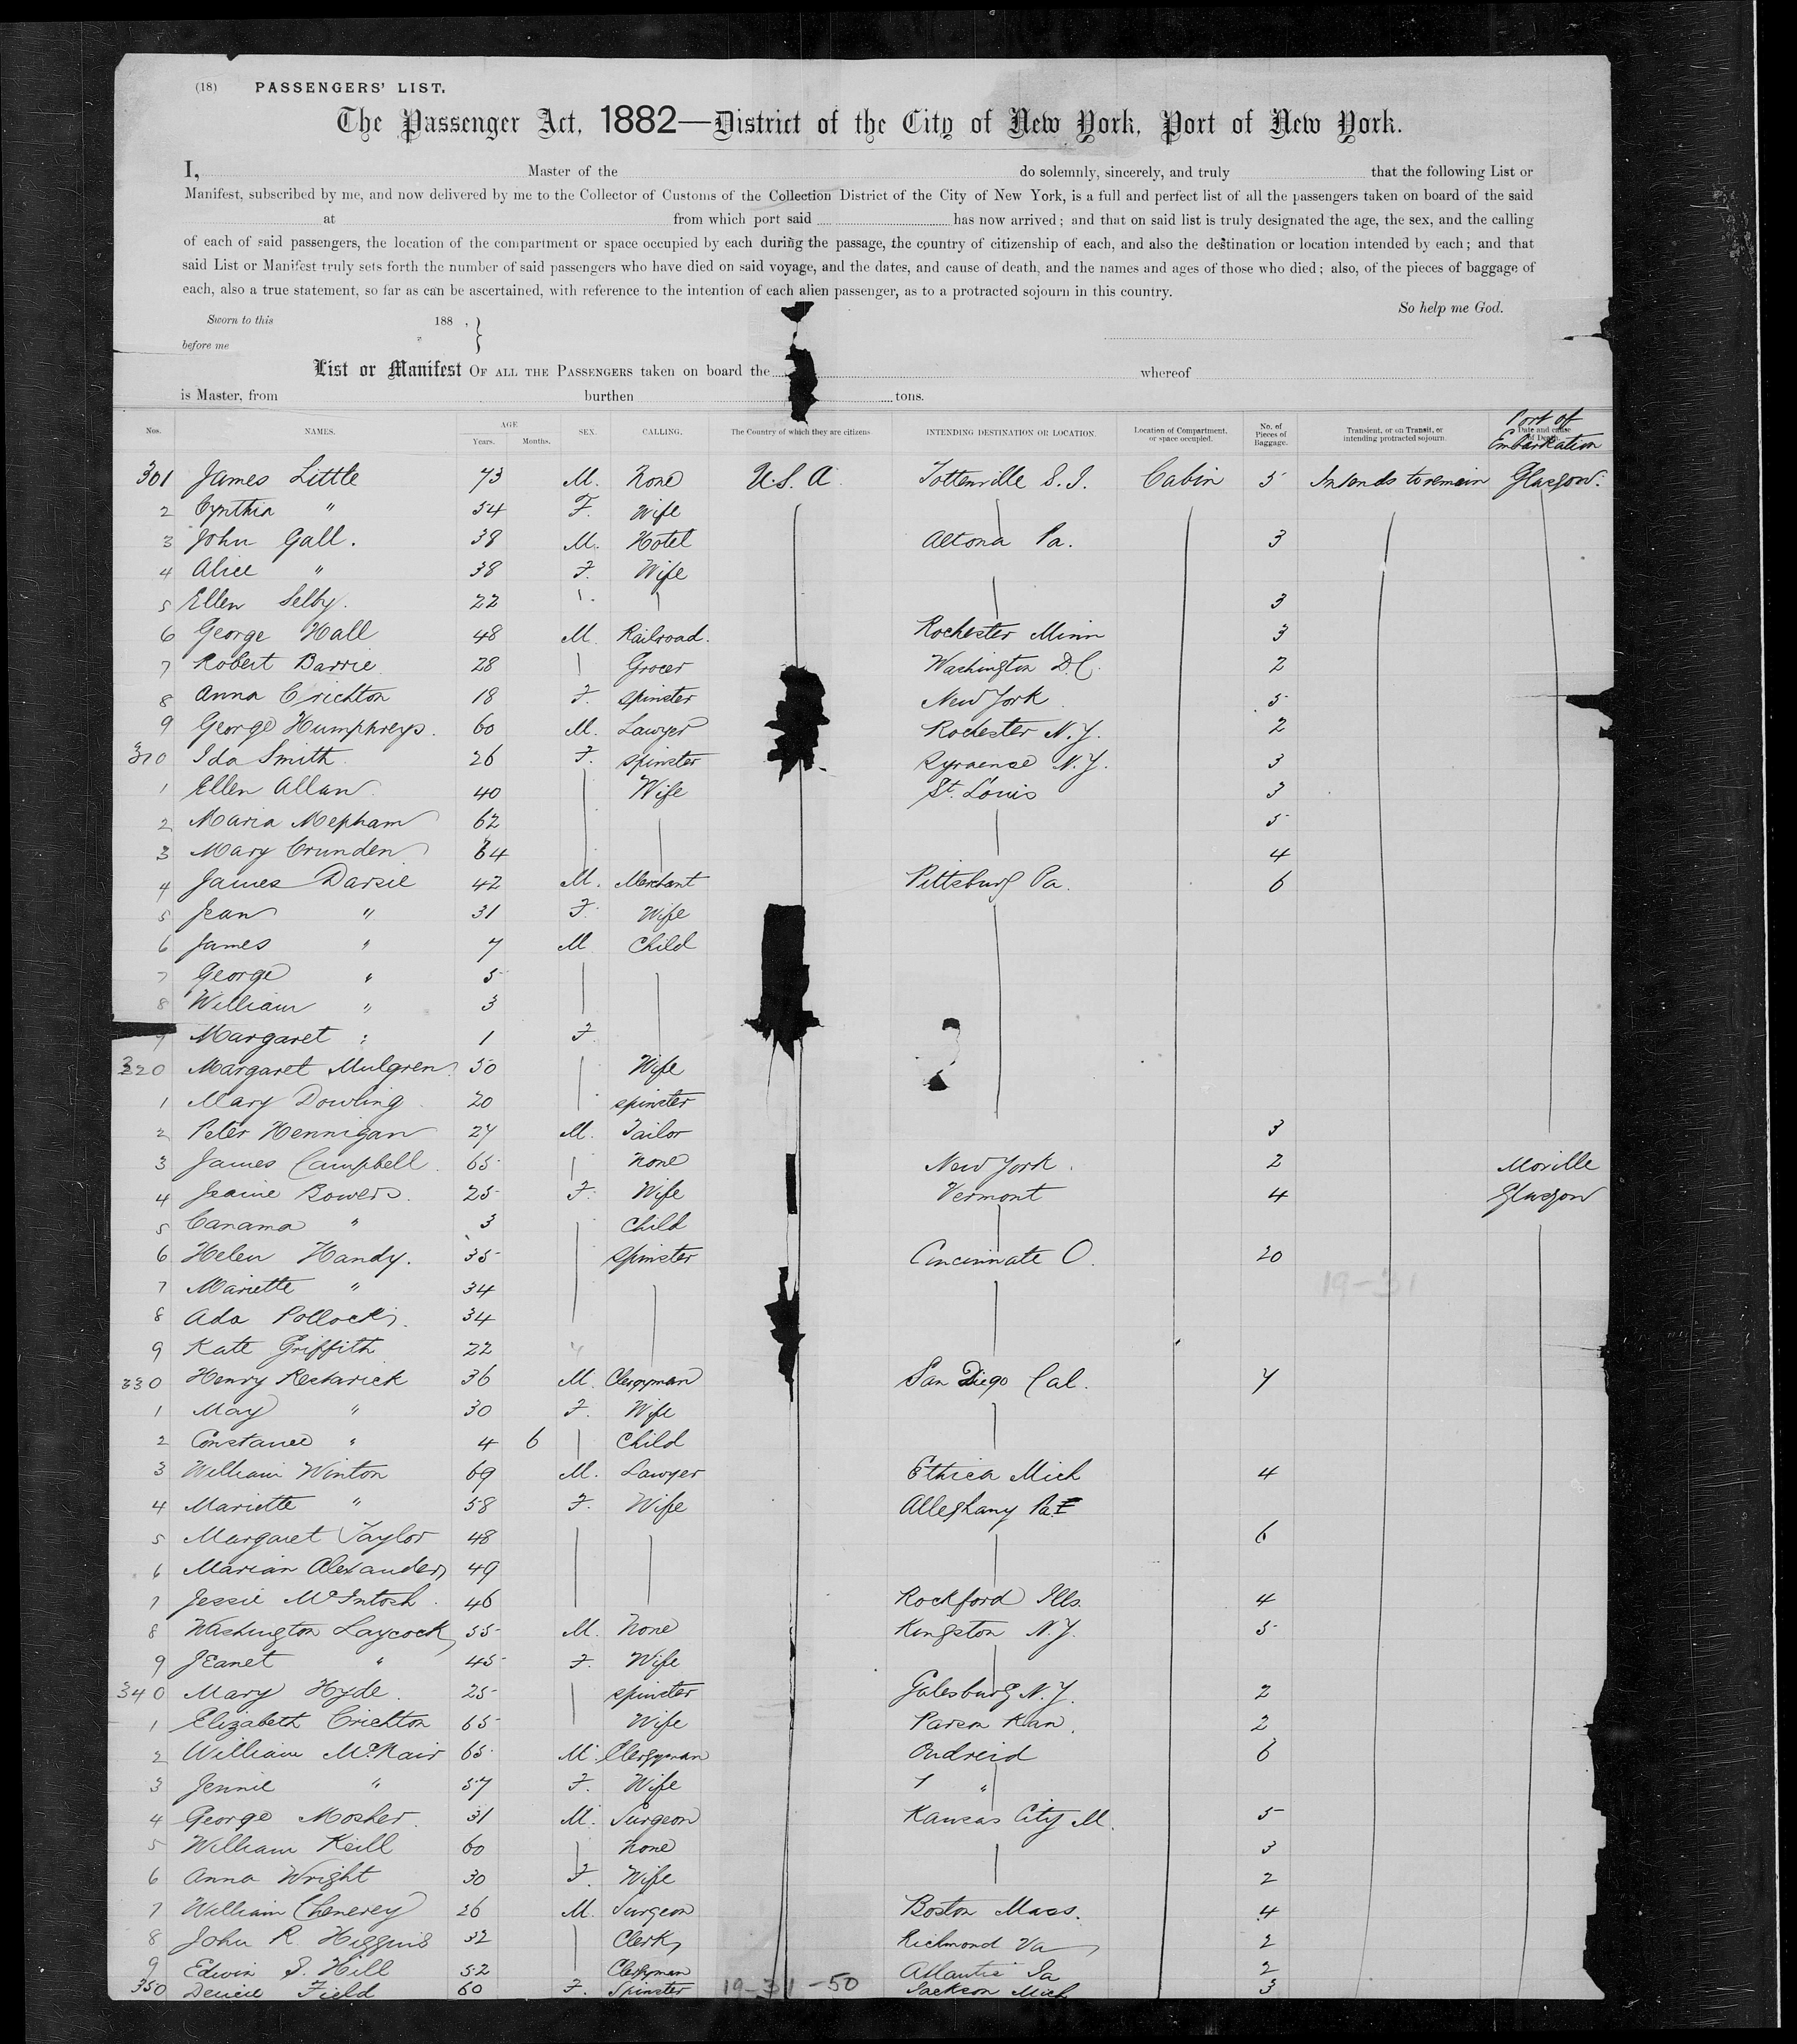 (18) PASSENGERS' LIST.
The Passenger Act, 1882—District of the City of New York, Port of New York.
I, Master of the do solemnly, sincerely, and truly that the following List or
Manifest, subscribed by me, and now delivered by me to the Collector of Customs of the Collection District of the City of New York, is a full and perfect list of all the passengers taken on board of the said
at from which port said has now arrived; and that on said list is truly designated the age, the sex, and the calling
of each of said passengers, the location of the compartment or space occupied by each during the passage, the country of citizenship of each, and also the destination or location intended by each; and that
said List or Manifest truly sets forth the number of said passengers who have died on said voyage, and the dates, and cause of death, and the names and ages of those who died; also, of the pieces of baggage of
each, also a true statement, so far as can be ascertained, with reference to the intention of each alien passenger, as to a protracted sojourn in this country.
So help me God.
Sworn to this 188 ,
before me
List or Manifest OF ALL THE PASSENGERS taken on board the whereof
is Master, from burthen tons.
Nos. NAMES. AGE Years. Months. SEX. CALLING. The Country of which they are citizens INTENDING DESTINATION OR LOCATION. Location of Compartment, or space occupied. No. of Pieces of Baggage. Transient, or on Transit, or intending protracted sojourn. Date and cause of Death. Port of Embarkation
301 James Little 73 M. None U.S.A. Tottenville S.I. Cabin 5 Intends to remain Glasgow.
2 Cynthia " 54 F. Wife
3 John Gall. 38 M. Hotel Altona Pa. 3
4 Alice " 38 F. Wife
5 Ellen Selby. 22 3
6 George Hall 48 M Railroad. Rochester Minn 3
7 Robert Barrie 28 Grocer Washington D.C. 2
8 Anna Crichton 18 F. Spinster New York 5
9 George Humphreys. 60 M. Lawyer Rochester N.Y. 2
310 Ida Smith 26 F. Spinster Syracuse N.Y. 3
1 Ellen Allan 40 Wife St. Louis 3
2 Maria Mepham 62 5
3 Mary Crunden 64 4
4 James Darsie 42 M. Merchant Pittsburg Pa. 6
5 Jean " 31 F. Wife
6 James " 7 M Child
7 George " 5
8 William " 3
9 Margaret " 1 F
320 Margaret Mulgren 50 Wife
1 Mary Dowling 20 Spinster
2 Peter Hennigan 27 M. Tailor 3
3 James Campbell 65 None New York. 2 Moville
4 Jeanie Bowers. 25 F. Wife Vermont 4 Glasgow
5 Canama " 3 Child
6 Helen Handy. 35 Spinster Cincinnate O. 20
7 Mariette " 34 19-31
8 Ada Pollock 34
9 Kate Griffith 22
330 Henry Restarick 36 M. Clergyman San Diego Cal. 7
1 May " 30 F. Wife
2 Constance " 4 6 Child
3 William Winton 69 M. Lawyer Ethica Mich 4
4 Mariette " 58 F. Wife Alleghany Pa
5 Margaret Taylor 48 6
6 Marian Alexander 49
7 Jessie McIntosh 46 Rockford Ills. 4
8 Washington Laycock 55 M. None Kingston N.Y. 5
9 Jeanet " 45 F. Wife
340 Mary Hyde. 25 Spinster Galesburg N.Y. 2
1 Elizabeth Crichton 65 Wife Parson Kan. 2
2 William McNair 65 M. Clergyman 6
3 Jennie " 57 F. Wife "
4 George Mosher 31 M. Surgeon Kansas City M. 5
5 William Keill 60 None 3
6 Anna Wright 30 F. Wife 2
7 William Chenerey 26 M. Surgeon Boston Mass. 4
8 John R. Higgins 32 Clerk Richmond Va 2
9 Edwin S. Hill 52 Clergyman Atlantic Ia 2
350 Field 60 F. Spinster 19-31-50 Jackson Mich 3